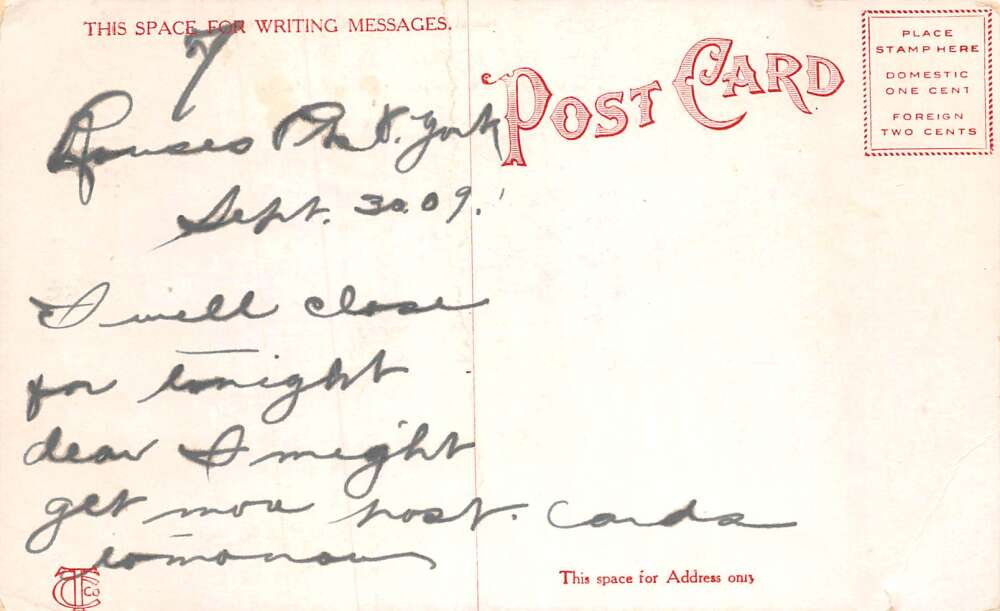 THIS SPACE FOR WRITING MESSAGES.
7
Rouses Pt. N. York
Sept. 30. 09.
I will close
for tonight
dear I might
get more post. Cards
tomorrow
POST CARD
PLACE
STAMP HERE
DOMESTIC
ONE CENT
FOREIGN
TWO CENTS
This space for Address only